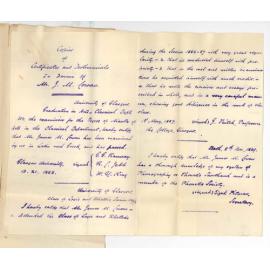 Copies
of
Certificates and Testimonials
in favour of
Mr. J. M. Cowan
University of Glasgow
Graduation in Arts, Classical Dept.
We, the examiners for the Degree of Master of
Arts in the Classical Department, hereby certify
that Mr. James M. Cowan has been examined
by us in Latin and Greek, and has passed.
G. G. Ramsay
Glasgow University, signed R. C. Jebb
University of Glasgow
Class of Logic and Rhetoric
I hereby certify that Mr. James M. Cowan
attended the Class of Logic and Rhetoric
during the Session 1886-87 with very great regular-
ity; that he conducted himself with pro-
priety; and that in the oral and written examina-
tions he acquitted himself with much credit;
that he wrote the essays and exercises pre-
scribed in class, and in a very careful manner
showing good diligence in the work of the
class.
May, 1887. signed J. Veitch, Professor
The College, Glasgow.
Bath, 1887.
I hereby certify that Mr. James M. Cowan
has a thorough knowledge of my system of
Phonography or Phonetic Shorthand and is a
member of the Phonetic Society.
signed Isaac Pitman,
Secretary.